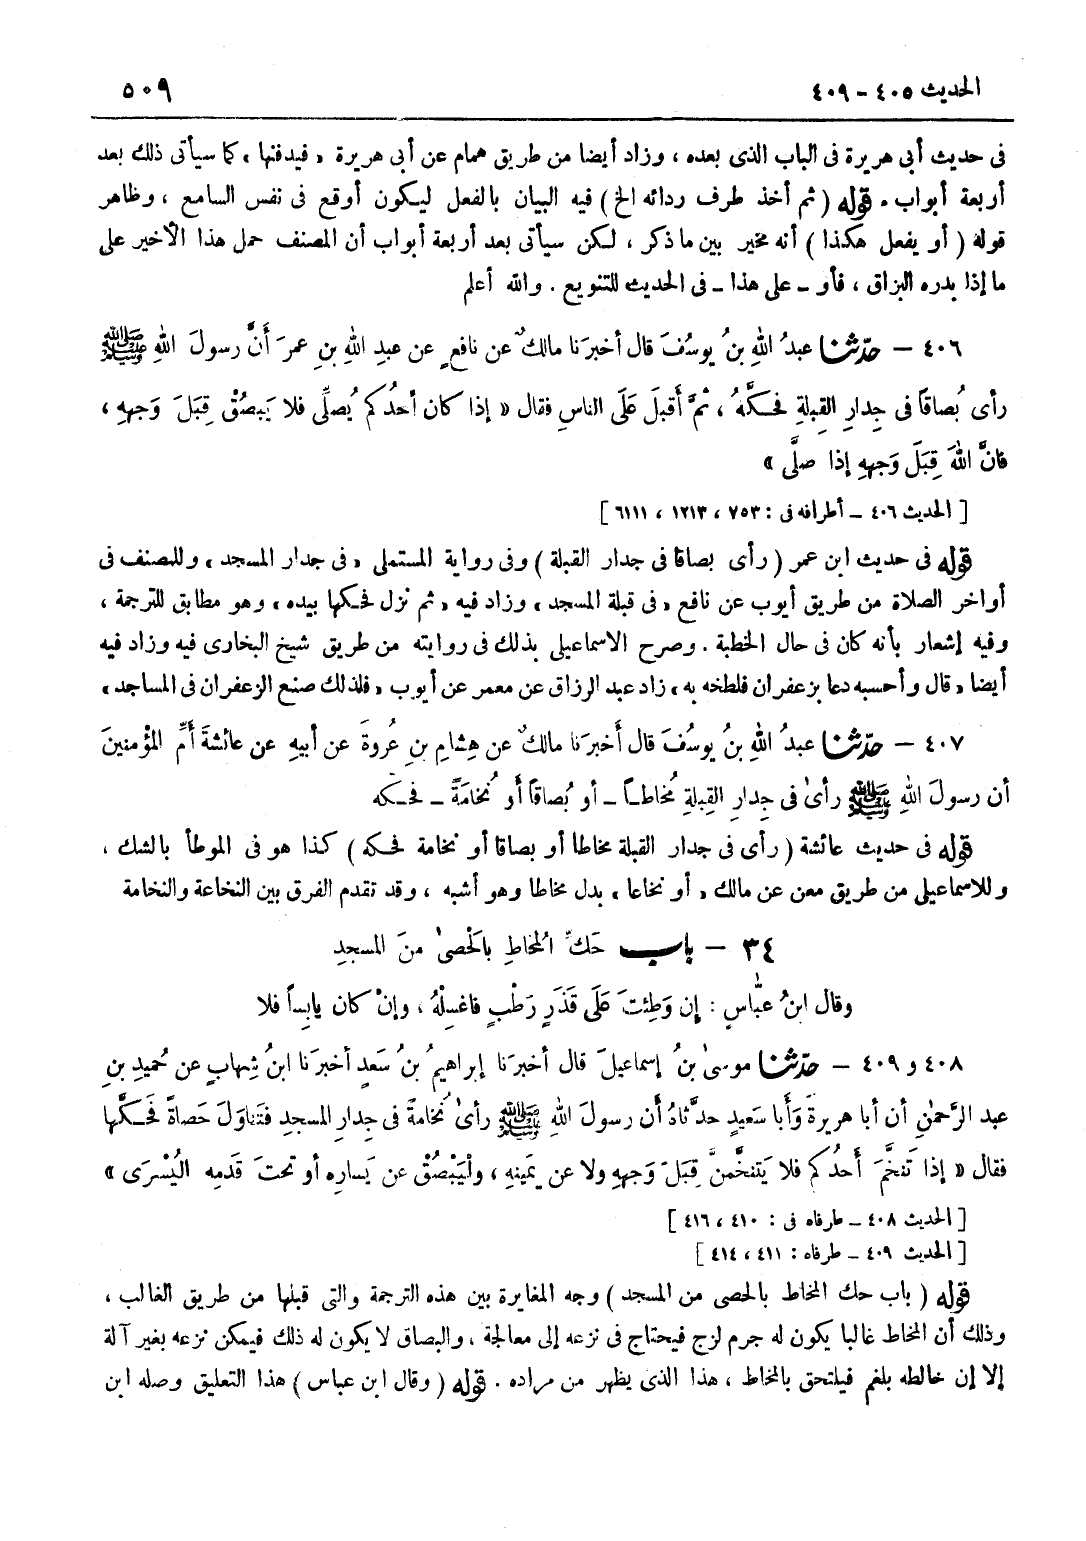 الحديث ٤٠٥ - ٤٠٩ ٥٠٩
فى حديث أبى هريرة فى الباب الذى بعده ، وزاد أيضا من طريق همام عن أبى هريرة « فيدفنها » كما سيأتى ذلك بعد
أربعة أبواب . قوله ( ثم أخذ طرف ردائه الخ ) فيه البيان بالفعل ليكون أوقع فى نفس السامع ، وظاهر
قوله ( أو يفعل هكذا ) أنه مخير بين ما ذكر ، لكن سيأتى بعد أربعة أبواب أن المصنف حمل هذا الأخير على
ما إذا بدره البزاق ، فأو - على هذا - فى الحديث للتنويع . والله أعلم
٤٠٦ - حدّثنا عبدُ اللهِ بنُ يوسُفَ قال أخبرَنا مالكٌ عن نافعٍ عن عبدِ اللهِ بنِ عمرَ أَنَّ رسولَ اللهِ ﷺ
رأى بُصاقاً فى جِدارِ القِبلةِ فحكَّهُ ، ثمَّ أَقبلَ عَلَى الناسِ فقال « إذا كان أحدُكم يُصلِّى فلا يَبصُقْ قِبَلَ وَجههِ ،
فانَّ اللهَ قِبَلَ وَجههِ إذا صلَّى »
[ الحديث ٤٠٦ - أطرافه فى : ٧٥٣ ، ١٢١٣ ، ٦١١١ ]
قوله فى حديث ابن عمر ( رأى بصاقا فى جدار القبلة ) وفى رواية المستملى « فى جدار المسجد » وللمصنف فى
أواخر الصلاة من طريق أيوب عن نافع « فى قبلة المسجد » وزاد فيه « ثم نزل فحكها بيده » وهو مطابق للترجمة ،
وفيه إشعار بأنه كان فى حال الخطبة . وصرح الاسماعيلى بذلك فى روايته من طريق شيخ البخارى فيه وزاد فيه
أيضا « قال وأحسبه دعا بزعفران فلطخه به » زاد عبد الرزاق عن معمر عن أيوب « فلذلك صنع الزعفران فى المساجد »
٤٠٧ - حدّثنا عبدُ اللهِ بنُ يوسُفَ قال أَخبرَنا مالكٌ عن هِشامِ بنِ عُروةَ عن أبيهِ عن عائشةَ أُمِّ المؤْمنينَ
أن رسولَ اللهِ ﷺ رأىٰ فى جِدارِ القِبلةِ مُخاطاً - أو بُصاقاً أَو نُخامَةً - فحكه
قوله فى حديث عائشة ( رأى فى جدار القبلة مخاطا أو بصاقا أو نخامة فحكه ) كذا هو فى الموطأ بالشك ،
وللاسماعيلى من طريق معن عن مالك « أو نخاعا » بدل مخاطا وهو أشبه ، وقد تقدم الفرق بين النخاعة والنخامة
٣٤ - باب حَكِّ المُخاطِ بالحَصىٰ منَ المسجدِ
وقال ابنُ عبّاسٍ : إن وَطِئتَ عَلَى قَذَرٍ رَطْبٍ فاغسِلْهُ ، وإنْ كان يابِساً فلا
٤٠٨ و ٤٠٩ - حدّثنا موسىٰ بنُ إسماعيلَ قال أخبرَنا إبراهيمُ بنُ سَعدٍ أخبرَنا ابنُ شِهابٍ عن حُميدِ بنِ
عبد الرَّحمٰنِ أن أبا هريرةَ وَأَبا سَعيدٍ حدَّثاهُ أَن رسولَ اللهِ ﷺ رأىٰ نُخامةً فى جِدارِ المسجدِ فتَناوَلَ حَصاةً فَحكَّها
فقال « إذا تَنخَّمَ أَحدُكم فلا يَتنخَّمنَّ قِبَلَ وَجههِ ولا عن يَمينهِ ، ولْيَبْصُقْ عن يَسارِه أو تحتَ قَدمِه اليُسْرَى »
[ الحديث ٤٠٨ - طرفاه فى : ٤١٠ ، ٤١٦ ]
[ الحديث ٤٠٩ - طرفاه : ٤١١ ، ٤١٤ ]
قوله ( باب حك المخاط بالحصى من المسجد ) وجه المغايرة بين هذه الترجمة والتى قبلها من طريق الغالب ،
وذلك أن المخاط غالبا يكون له جرم لزج فيحتاج فى نزعه إلى معالجة ، والبصاق لا يكون له ذلك فيمكن نزعه بغير آلة
إلا إن خالطه بلغم فيلتحق بالمخاط ، هذا الذى يظهر من مراده . قوله ( وقال ابن عباس ) هذا التعليق وصله ابن